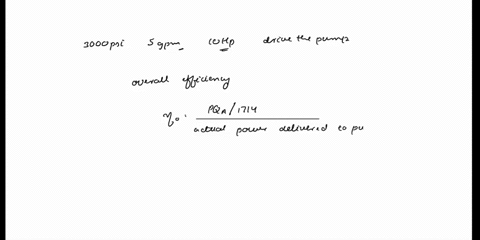 3000psi 5gpm 10Hp drive the pump?
overall efficiency
η₀ = PQA/1714
actual power delivered to pu